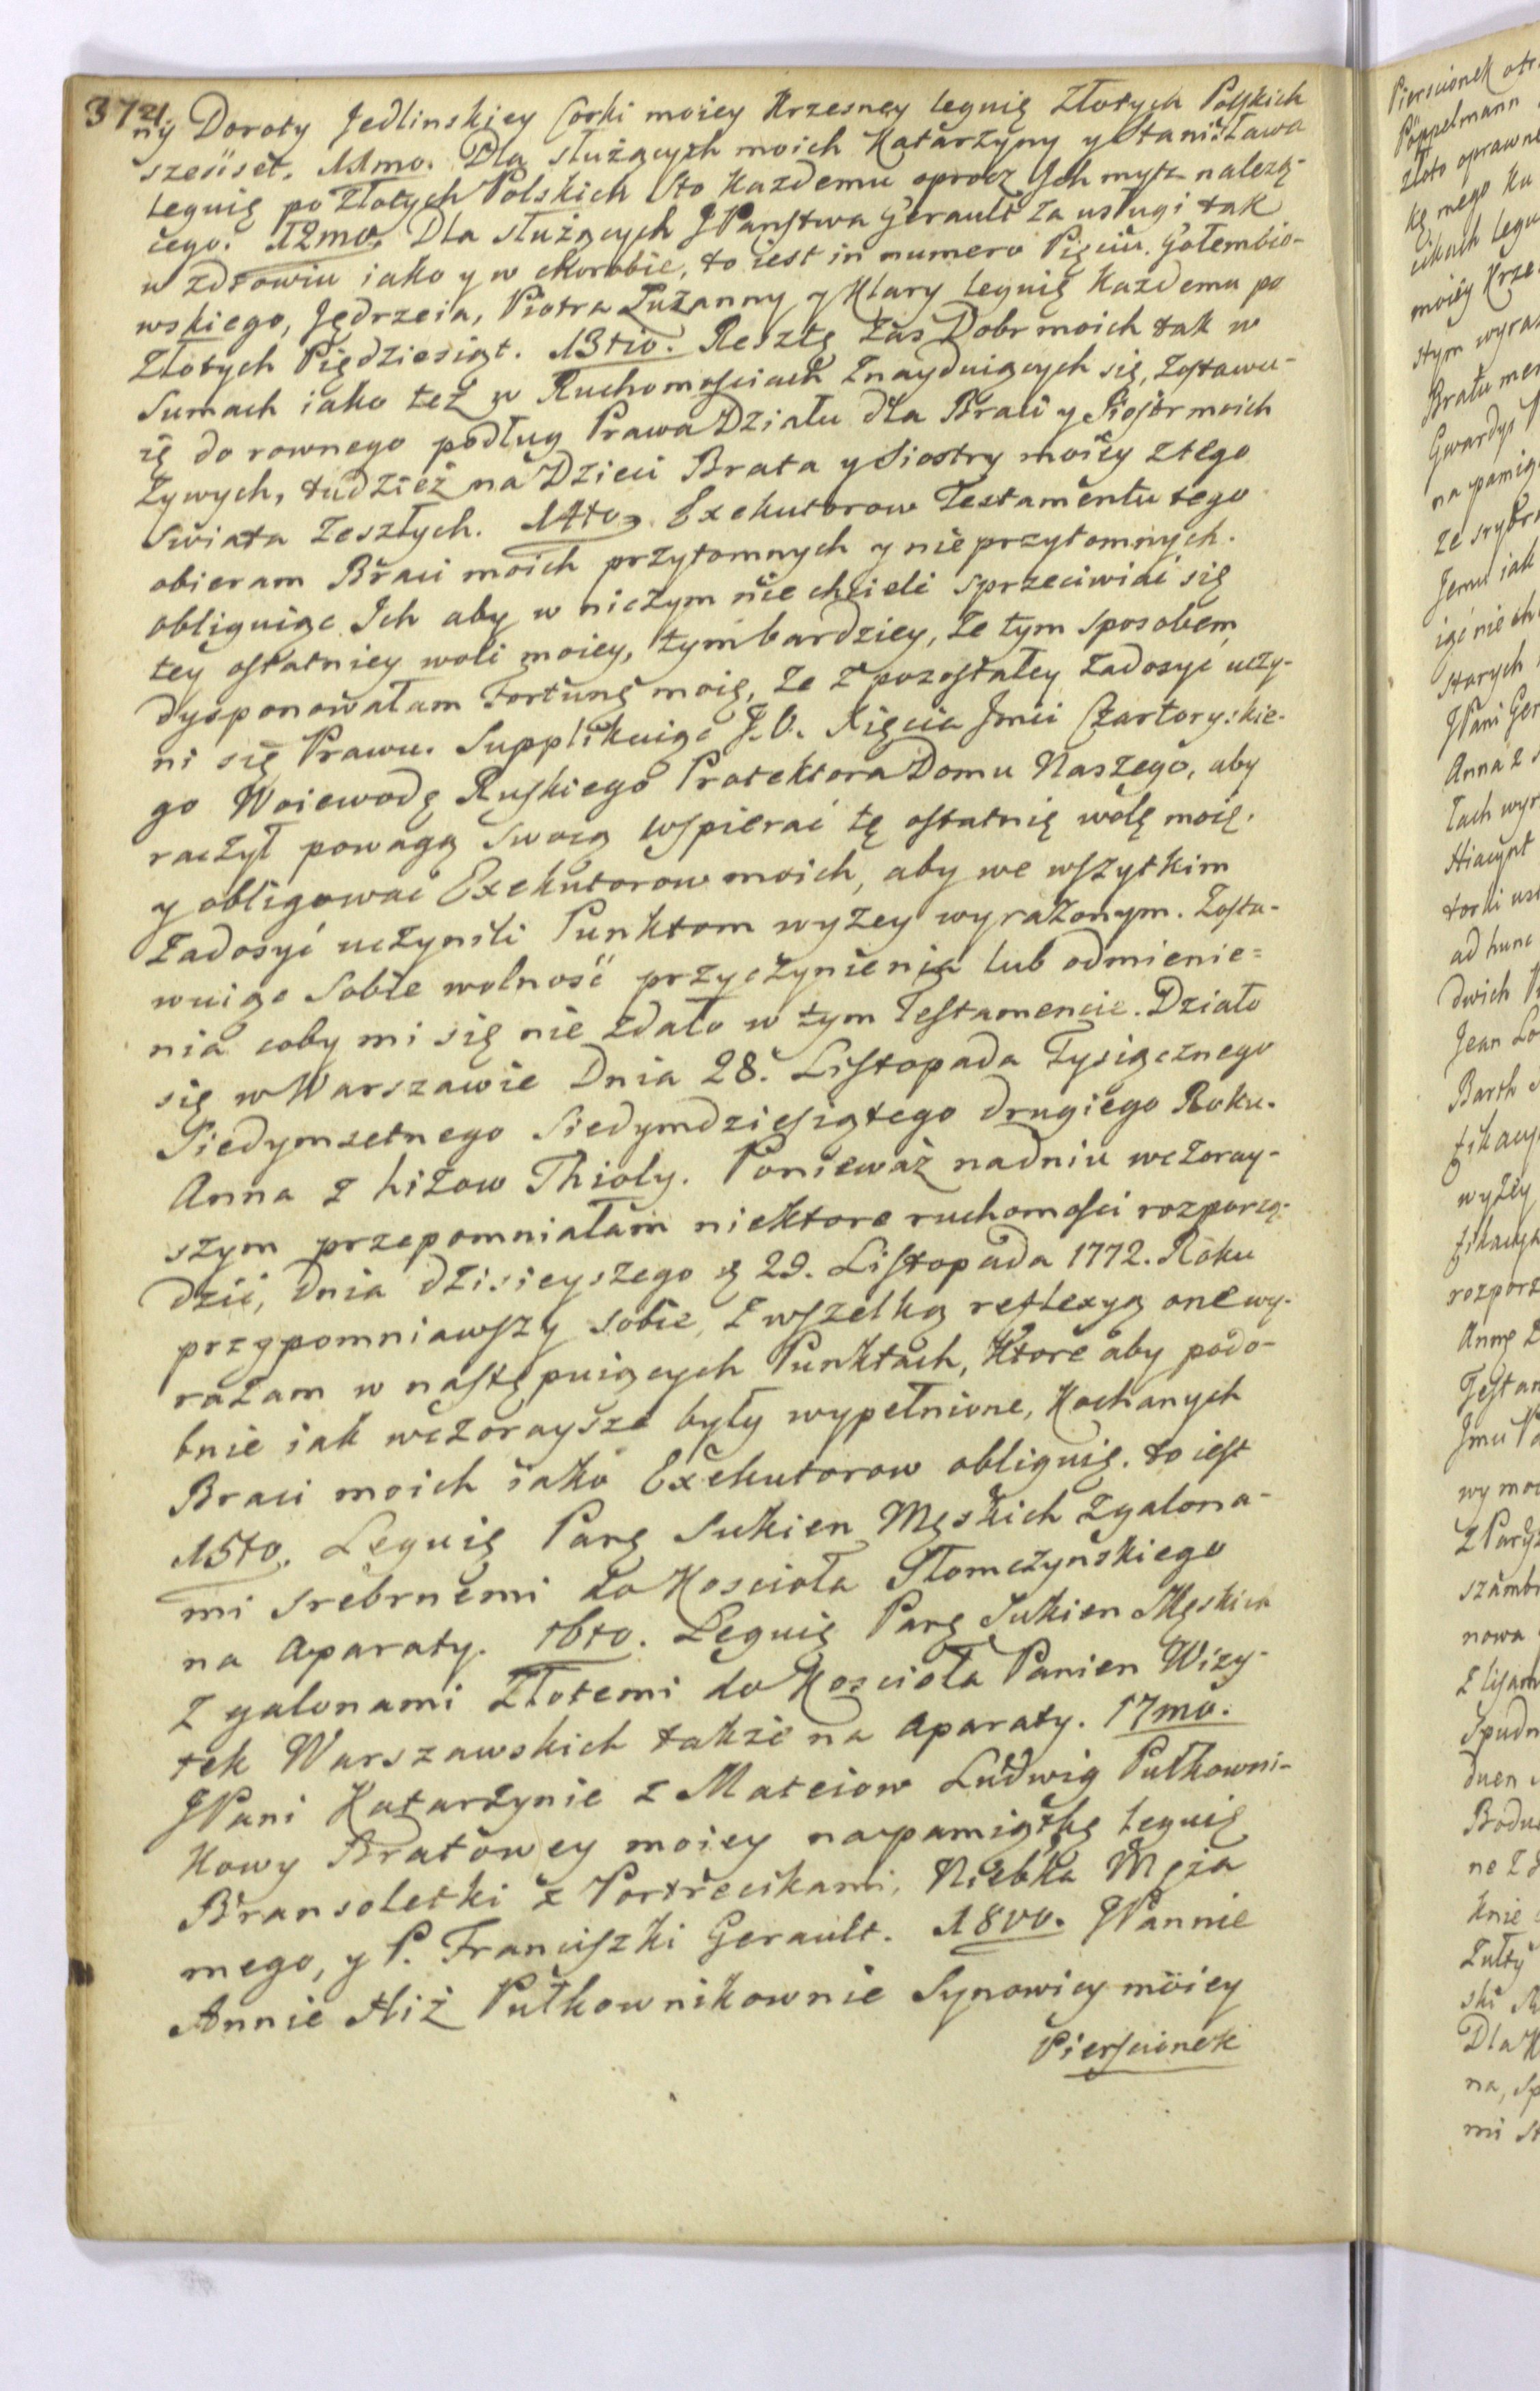 372
ny Doroty Jedlinskiey Corki moiey Krzesney leguię Złotych Polskich
sześćset. 11mo. Dla służących moich Katarzyny y Stanisława
leguię po Złotych Polskich Sto Każdemu oprocz Ich myta należą-
cego. 12mo. Dla służących JPaństwa Gerault za usługi tak
w zdrowiu iako y w chorobie, to iest in numero Pięciu. Gołembio-
wskiego, Jędrzeia, Piotra Zuzanny y Klary leguię Każdemu po
Złotych Pięćdziesiąt. 13tio. Resztę zas Dobr moich tak w
Sumach iako też w Ruchomościach Znayduiących się, Zostawu-
ię do rownego podług Prawa Działu dla Braci y Siostr moich
Żywych, tudzież na Dzieci Brata y Siostry moiey z tego
Swiata Zeszłych. 14to. Exekutorow Testamentu tego
obieram Braci moich przytomnych y nieprzytomnych.
obliguiąc Ich aby w niczym nie chcieli sprzeciwiać się
tey ostatniey woli moiey, tym bardziey, że tym sposobem
dysponowałam Fortunę moię, że z pozostałey Zadosyć uczy-
ni się Prawu. Supplikuiąc J.O. Xięcia Jmci Czartoryskie-
go Woiewodę Ruskiego Protektora Domu Naszego, aby
raczył powagą Swoią wspierać tę ostatnię wolę moię.
y obligować Exekutorow moich, aby we wszytkim
Zadosyć uczynili Punktom wyżey wyrażonym. Zosta-
wuiąc Sobie wolność przyczynienia lub odmienie=
nia coby mi się nie zdało w tym Testamencie. Działo
się w Warszawie Dnia 28. Listopada Tysiącznego
Siedymsetnego Siedymdziesiątego drugiego Roku.
Anna z Hiżow Thioly. Ponieważ na dniu wczoray-
szym przepomniałam niektore ruchomości rozporzą-
dzić, Dnia dzisieyszego 29. Listopada 1772. Roku
przypomniawszy sobie, z wszelką reflexyą one wy-
rażam w następuiących Punktach, Ktore aby podo-
bnie iak wczoraysze były wypełnione, Kochanych
Braci moich iako Exekutorow obliguię. to iest
15to. Leguię Parę Sukien Męskich z galona-
mi srebrnemi do Kościoła Słomczyńskiego
na Aparaty. 16to. Leguię Parę Sukien Męskich
z galonami Złotemi do Kościoła Panien Wizy-
tek Warszawskich także na Aparaty. 17mo.
JPani Katarzynie z Mateiow Ludwig Pułkowni-
kowy Bratowey moiey na pamiątkę leguię
Bransoletki z Portrecikami, Nieb&#x142;a Męża
mego, y P. Franciszki Gerault. 18vo. JPannie
Annie Hiż Pułkownikownie Synowicy moiey
Pierscionek
Pierscionek
Pöppelmann
złoto oprawne
kę mego
moiey Krze
stym wyraz
Bratu
Gwardyi
na pamią
ze srybr
Jemu iak
iąć nie ch
starych
JPani Ger
Anna z
łach wyr
Hiacynt
ad hunc
dwich
Jean
Barth
wyżey
rozporz
Annę
Testam
Jmci
wy
z Pary
nowa
ne z
knie
Dla
na,
mi